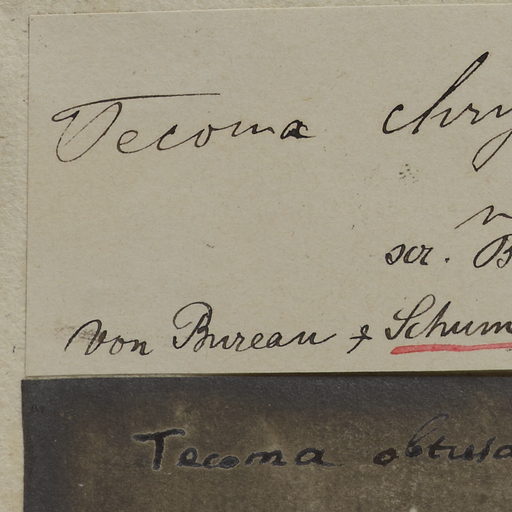 Tecoma chry
scr. B
von Bureau & Schum
Tecoma obtusa